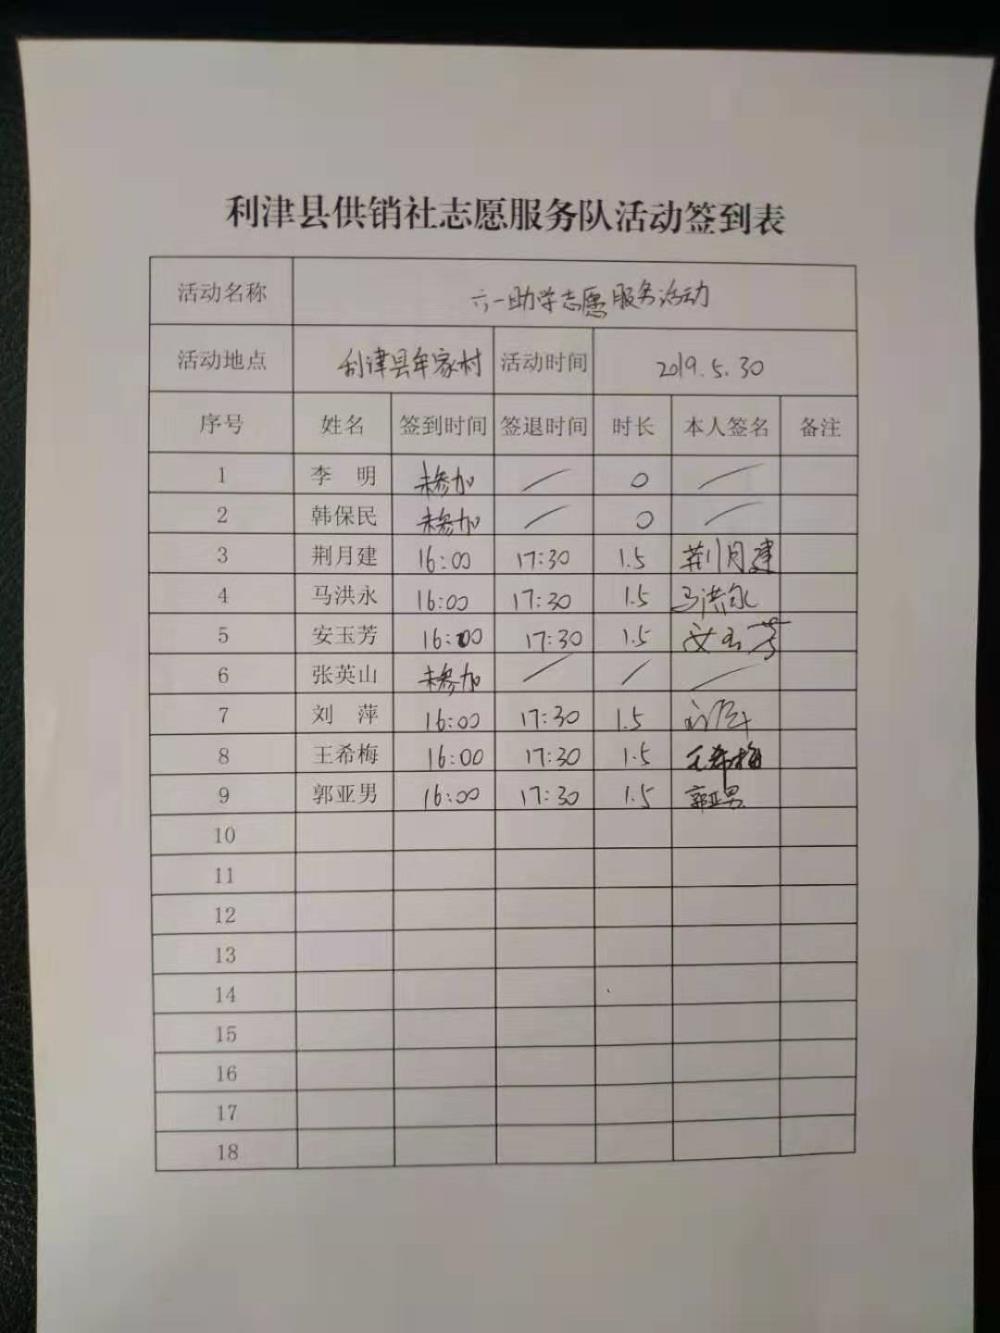 利津县供销社志愿服务队活动签到表
活动名称 六一助学志愿服务活动
活动地点 利津县牟家村 活动时间 2019.5.30
序号 姓名 签到时间 签退时间 时长 本人签名 备注
1 李 明 未参加 / 0 /
2 韩保民 未参加 / 0 /
3 荆月建 16:00 17:30 1.5 荆月建
4 马洪永 16:00 17:30 1.5 马洪永
5 安玉芳 16:00 17:30 1.5 安玉芳
6 张英山 未参加 / / /
7 刘 萍 16:00 17:30 1.5 刘萍
8 王希梅 16:00 17:30 1.5 王希梅
9 郭亚男 16:00 17:30 1.5 郭亚男
10
11
12
13
14
15
16
17
18